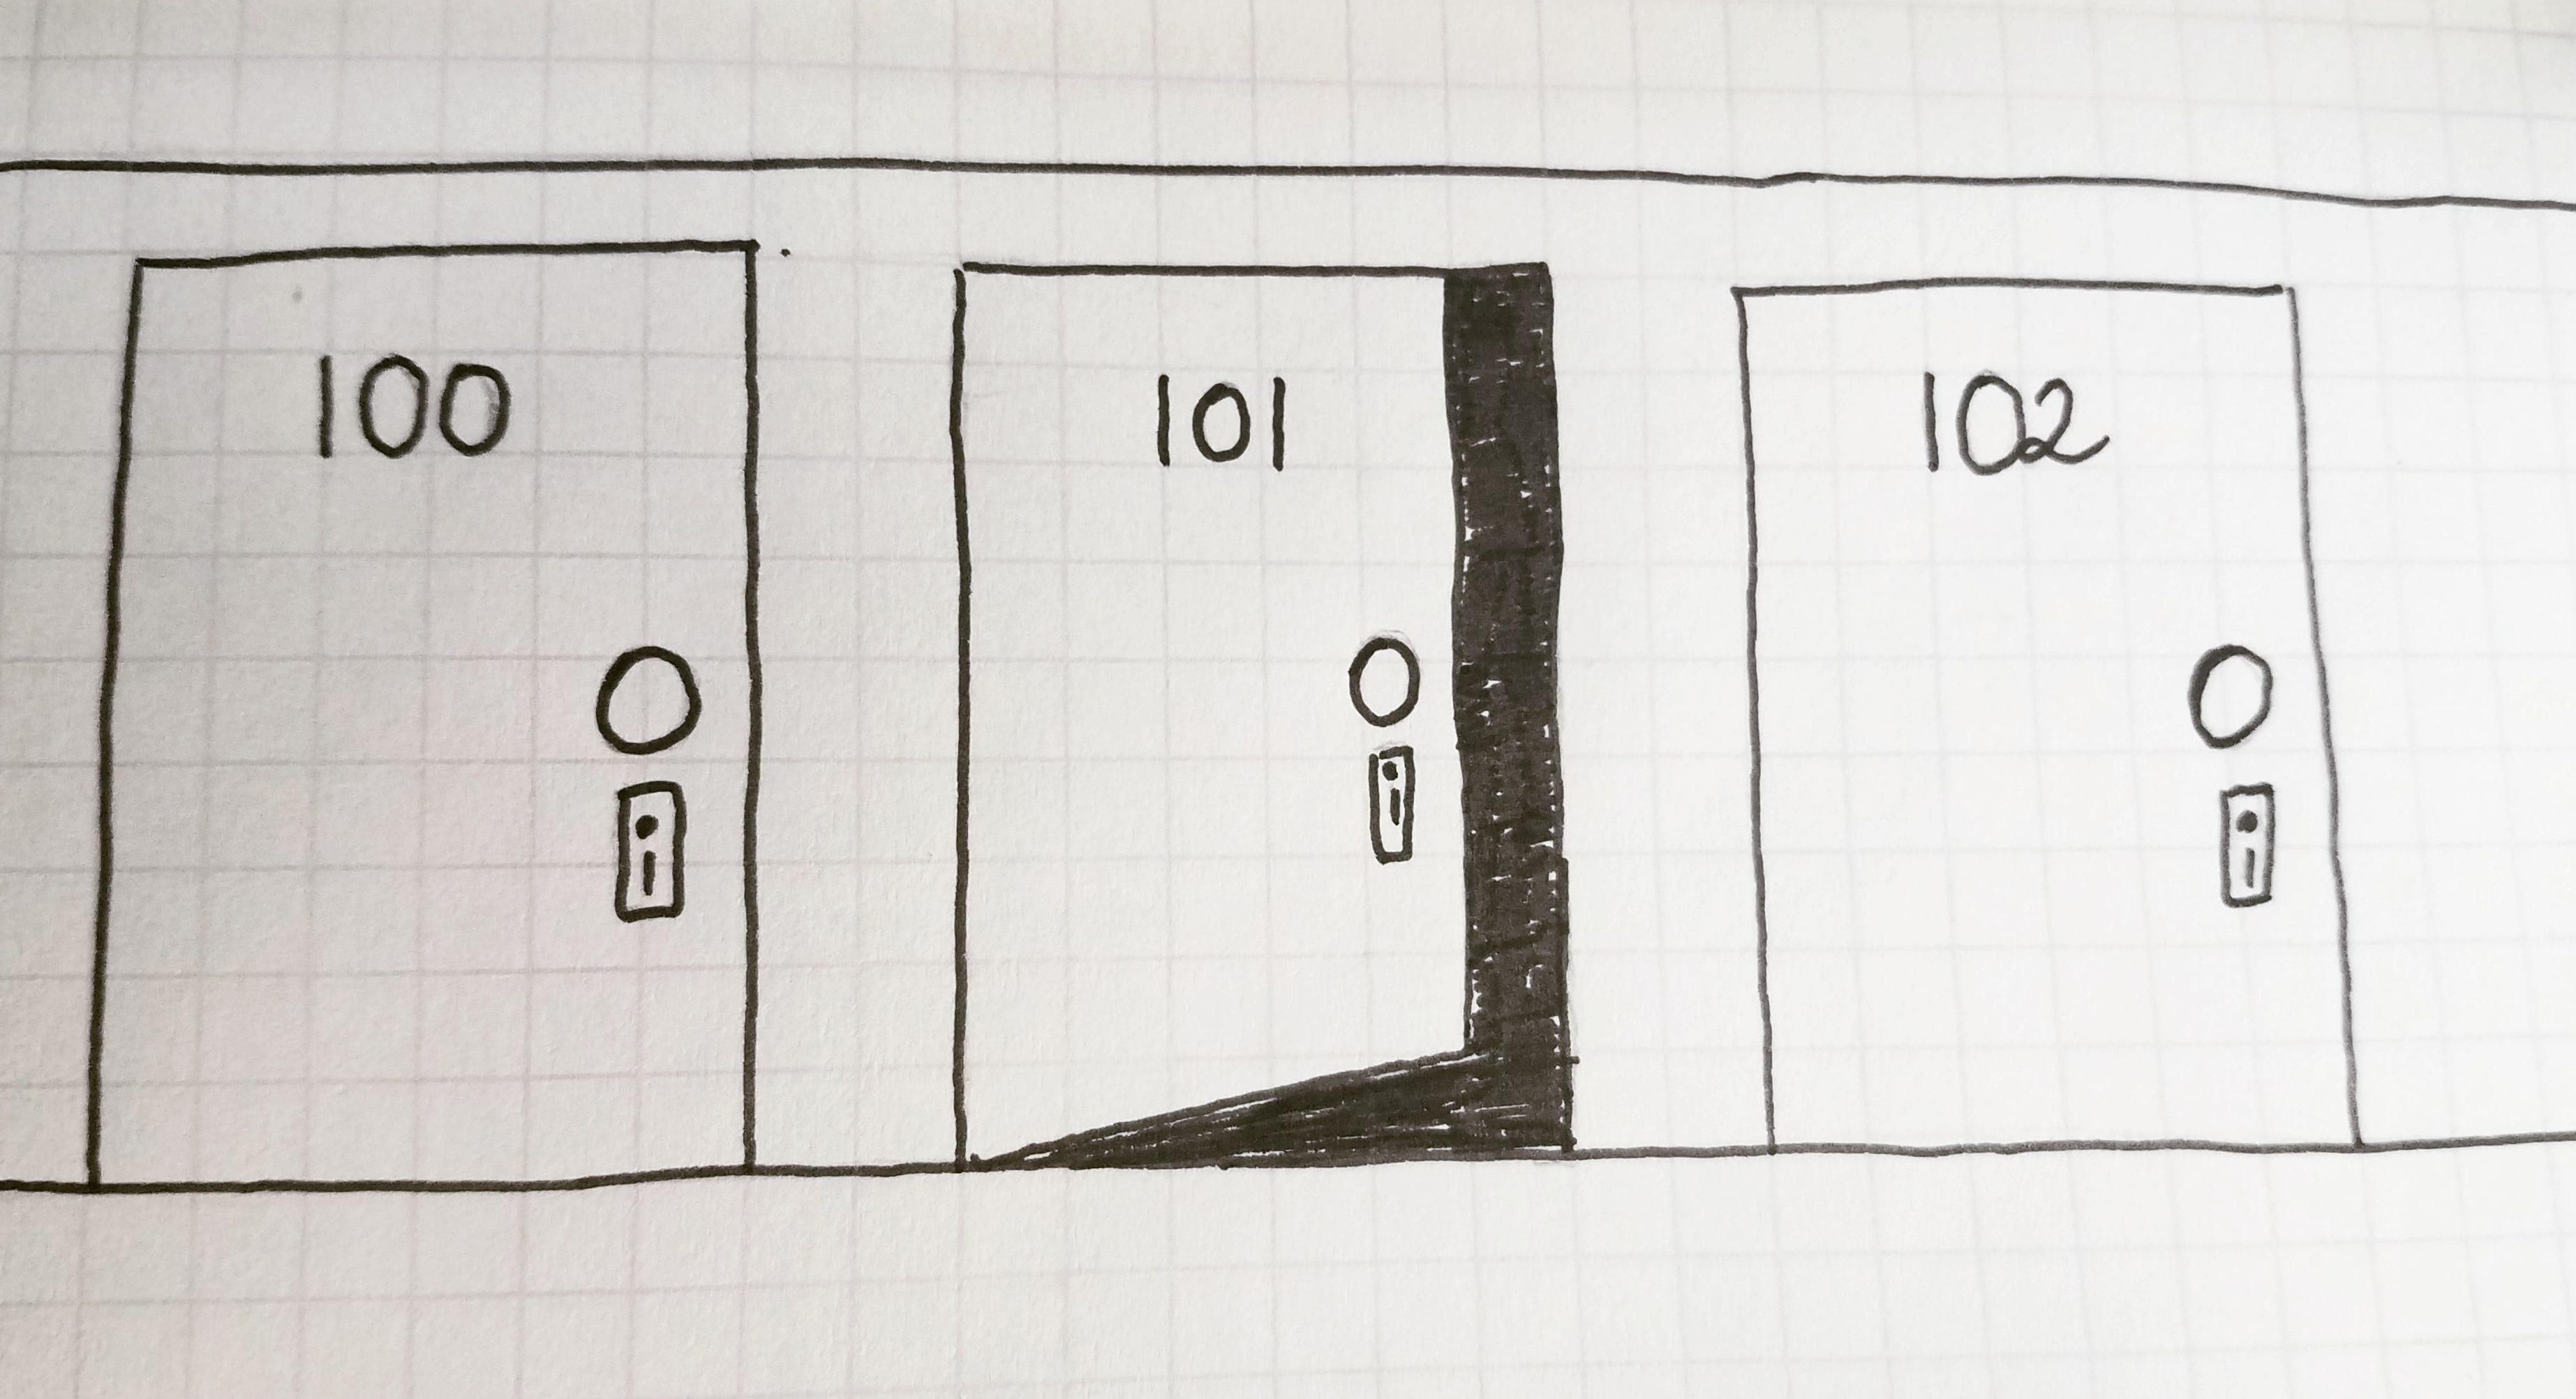 100
101
102